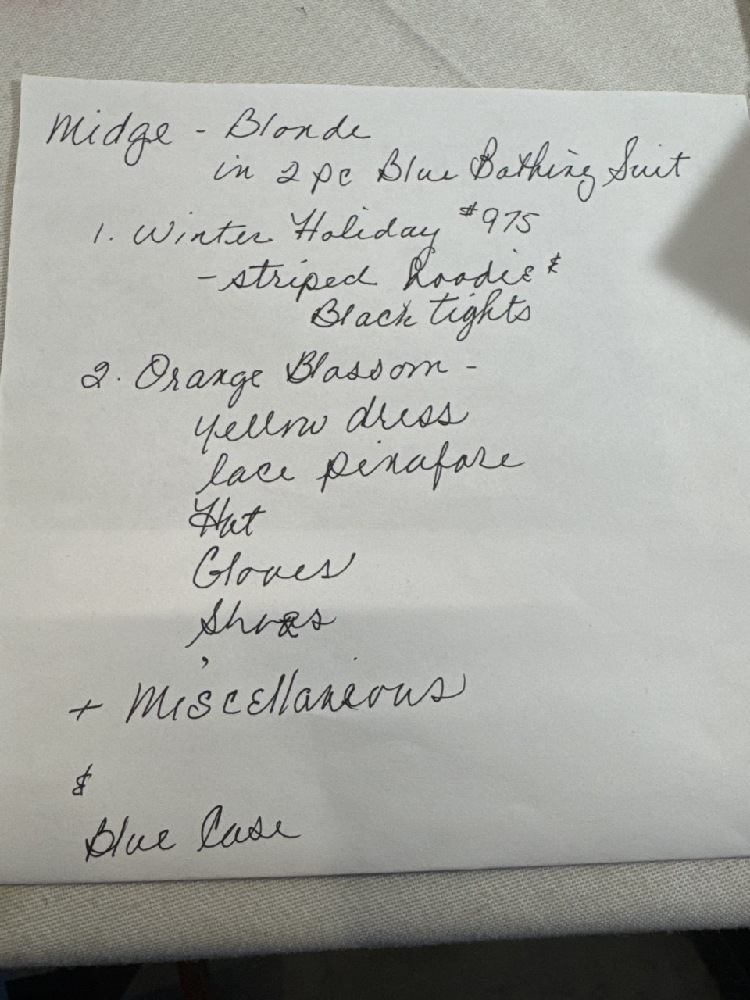 Midge - Blonde
in 2 pc Blue Bathing Suit
1. Winter Holiday #975
- striped hoodie &
Black tights
2. Orange Blossom -
yellow dress
lace pinafore
Hat
Gloves
Shoes
+ Miscellaneous
&
Blue Case